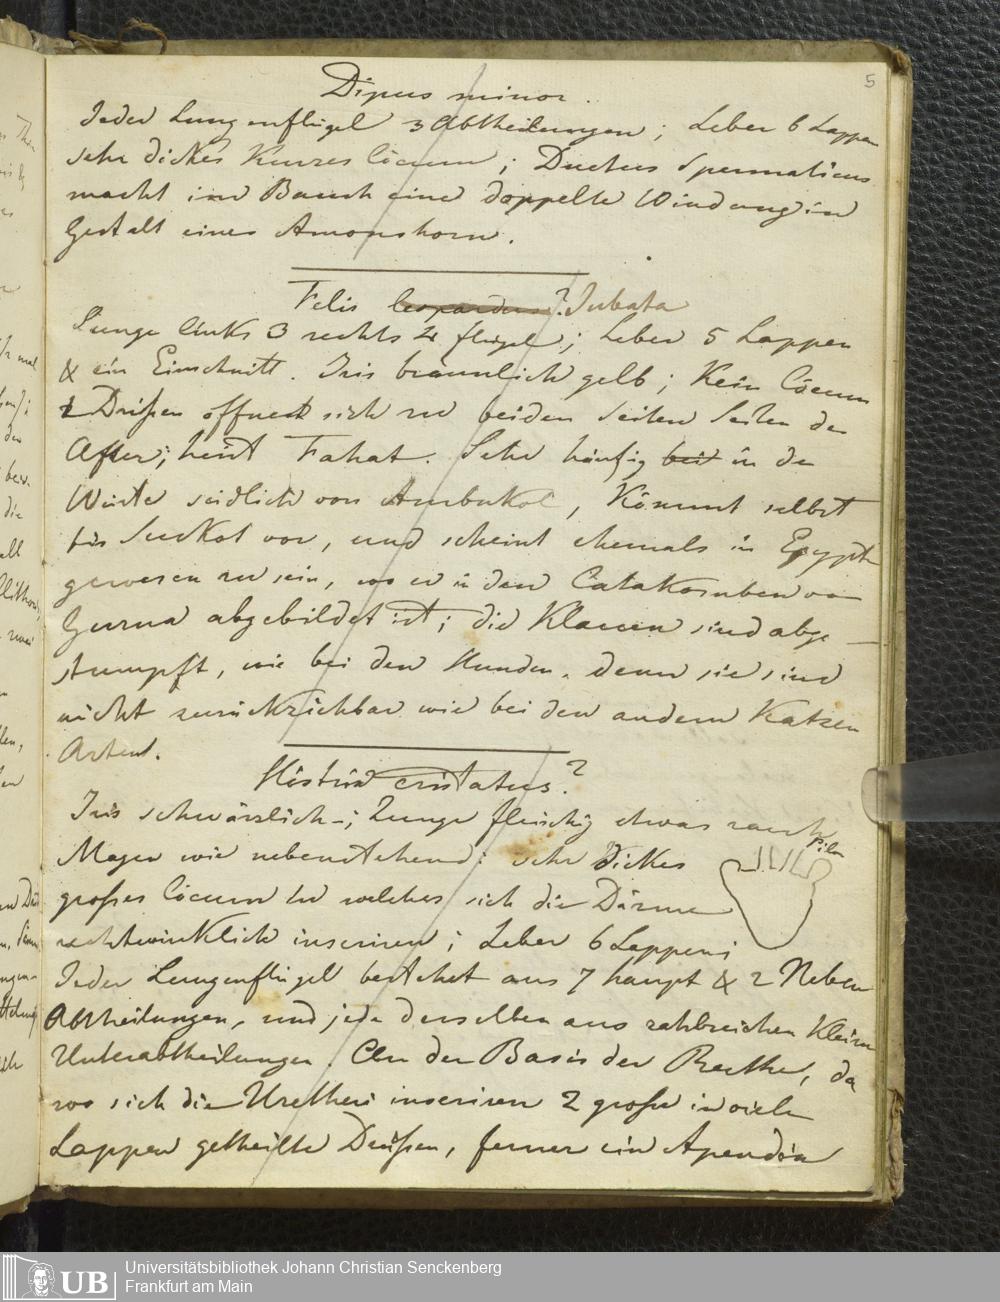 5
Dipus minor.
Jeder Lungenflügel 3 Abtheilungen; Leber 6 Lappen
sehr dickes kurzes Cöcum; Ductus Spermaticus
macht im Bauch eine doppelte Windung in
Gestalt eines Amonshorn.
Felis leopardus? Jubata
Lunge links 3 rechts 4 flügel; Leber 5 Lappen
& ein Einschnitt. Iris bräunlich gelb; Kein Cöcum
2 Drüsen öffnen sich zu beiden Seiten Seiten der
After; heist Fahat. Sehr häufig bei in der
Wüste südlich von Ambukol, Kömmt selbst
bis Suckot vor, und scheint ehemals in Egypten
gewesen zu sein, wo er in den Catakomben von
Gurna abgebildet ist; die Klauen sind abge-
stumpft, wie bei den Hunden, denn sie sind
nicht zurückziehbar wie bei den andern Katzen
Arten.
Histrix cristatus?
Iris schwärzlich-; Zunge fleischig etwas rauh
Magen wie nebenstehend; sehr dickes
großes Cöcum in welches sich die Därme
rechtwinklich inseriren; Leber 6 Lappen;
Jeder Lungenflügel bestehet aus 7 haupt & 2 Neben
Abtheilungen, und jede derselben aus zahlreichen Kleinen
Unterabtheilungen. An der Basis der Ruthe, da
wo sich die Uretheri inseriren 2 große in viele
Lappen getheilte Drüßen, ferner ein Apendix
UB
Universitätsbibliothek Johann Christian Senckenberg
Frankfurt am Main